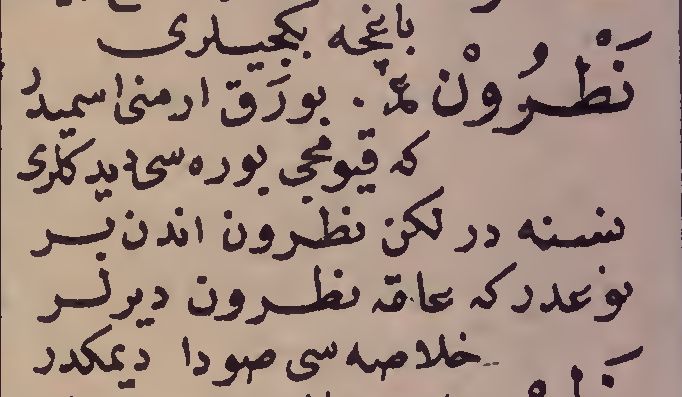 باغچه بكجیلری
نَطْرُونْ ع. بورَق ارمنی اسمیدر
كه قیومجی بوره سی دیدكلری
نسنه در لكن نطرون اندن بر
نوعدر كه عامّه نطرون دیرلر
خلاصه سی صودا دیمكدر